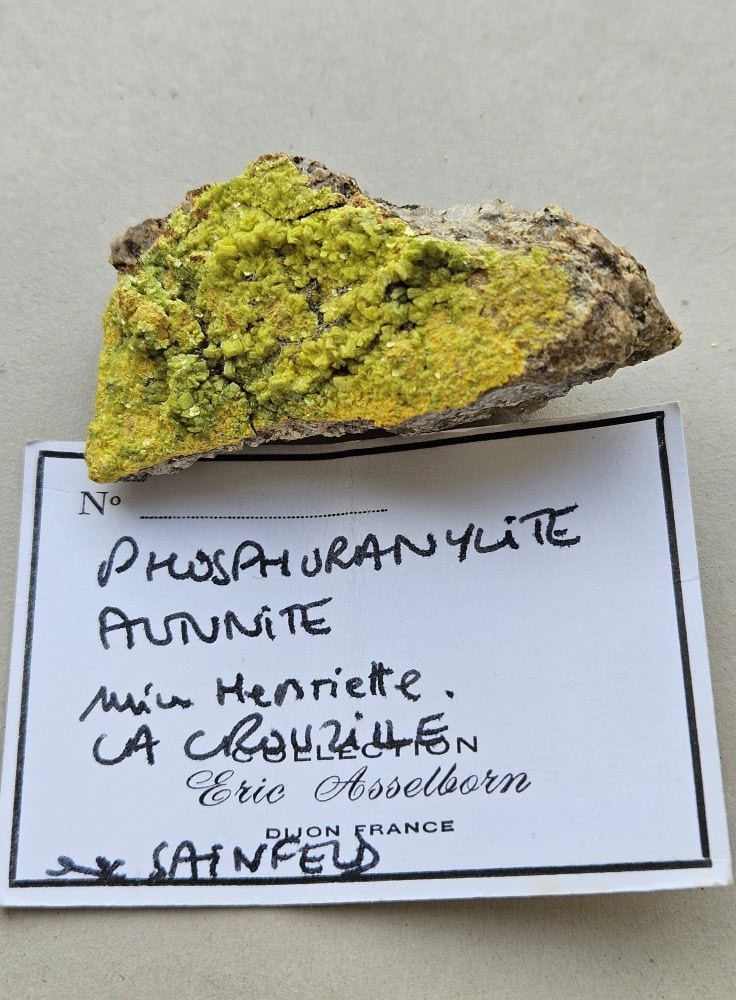 Nº
PHOSPHURANYLITE
AUNNITE
min Henriette.
LA CROUZILLE
COLLECTION
Eric Asselborn
DIJON FRANCE
ex SAINFELD